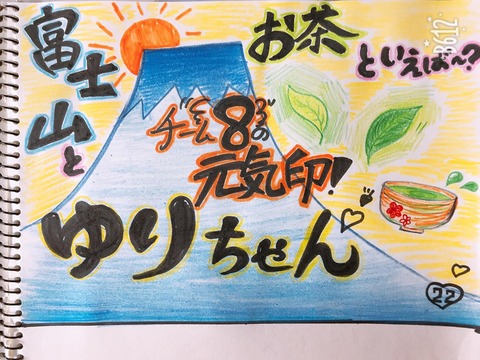 富士山と
お茶
といえば〜?
チーム8の
元気印!
ゆりちゃん
22
B612